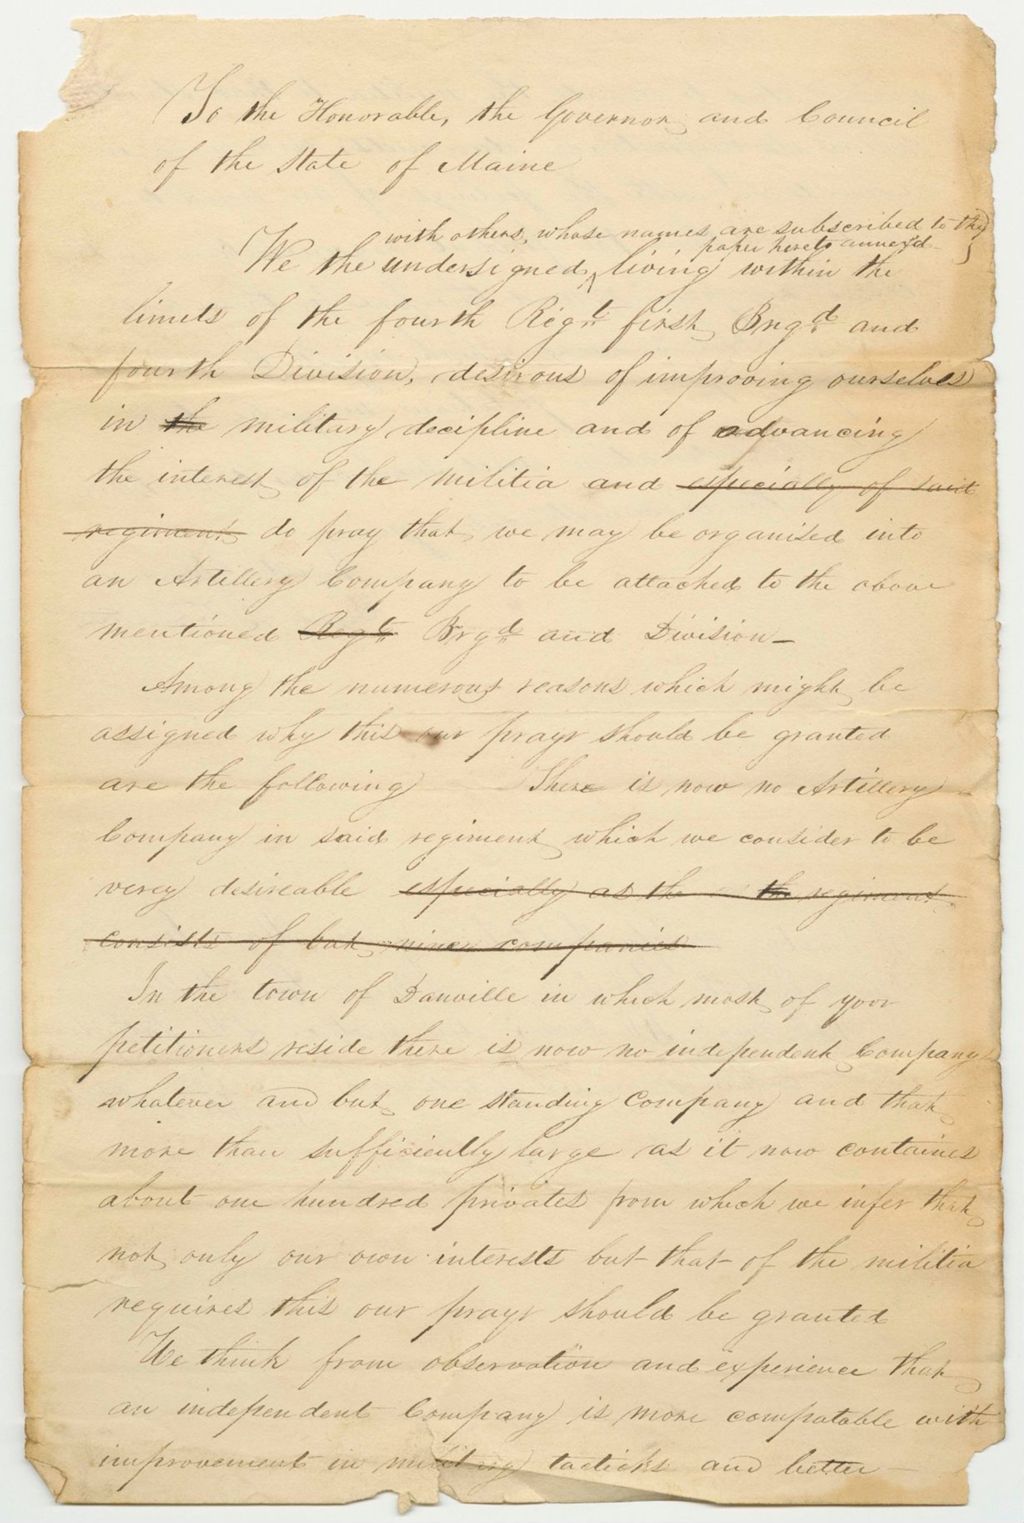 To the Honorable, the Governor and Council
of the state of Maine
with others, whose names are subscribed to the
paper hereto annex'd
We the undersigned, living within the
limits of the fourth Regt first Brgd and
fourth Division, desirous of improving ourselves
in the military decipline and of advancing
the interest of the militia and especially of said
regiment do pray that we may be organised into
an Artillery Company to be attached to the above
mentioned Regt Brgd and Division—
Among the numerous reasons which might be
assigned why this our prayr should be granted
are the following There is now no Artillery
Company in said regiment which we consider to be
verey desireable especially as the the regiment
consists of but nine companies
In the town of Danville in which most of your
petitioners reside there is now no independent Company
whatever and but one standing Company and that
more than sufficiently large as it now containes
about one hundred privates from which we infer that
not only our own interests but that of the militia
requires this our prayr should be granted
We think from observation and experience that
an independent Company is more compatable with
improvement in military tacticks and better—